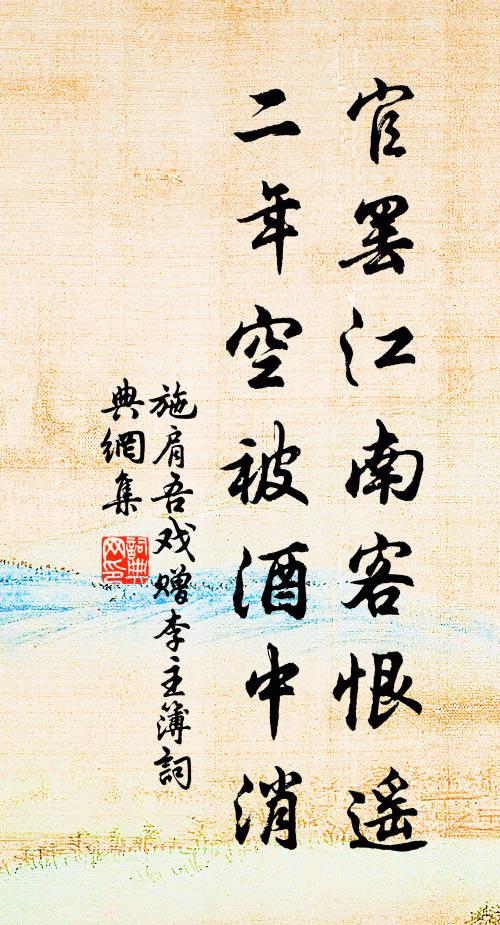 官罢江南客恨遥
二年空被酒中消
施肩吾戏赠李主簿詞
典網集
詞典
网印